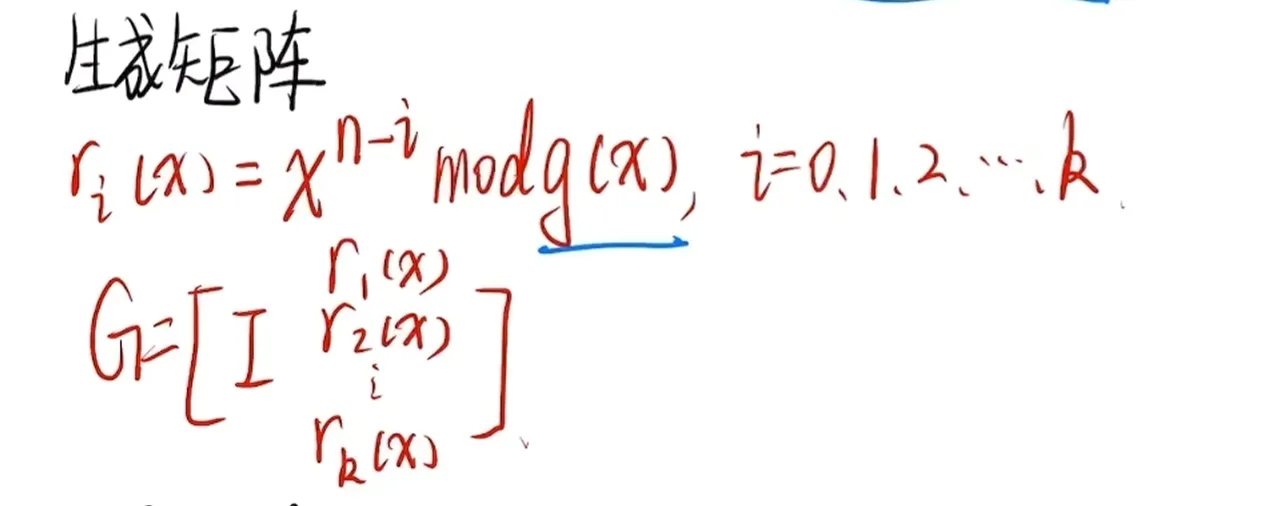 生成矩阵
rᵢ(x) = xⁿ⁻ⁱ mod g(x), i=0、1、2、…、k
G=[I r₁(x)
r₂(x)
⋮
rₖ(x)]